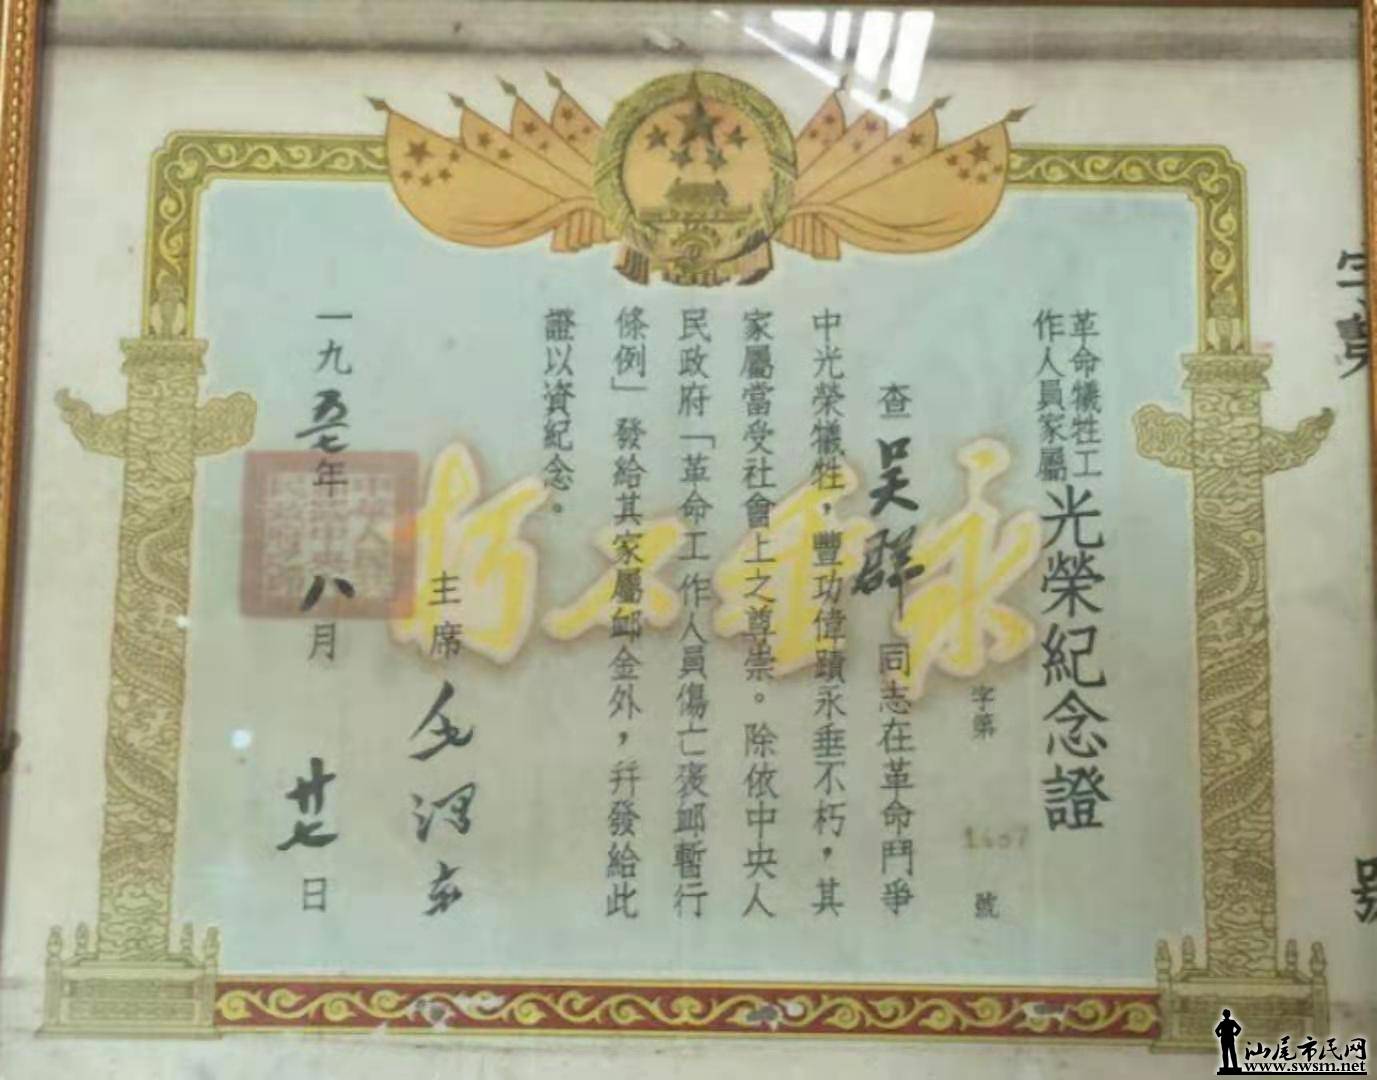 革命犧牲工
作人員家屬
光榮紀念證
字第 1407 號
查吳群同志在革命鬥爭
中光榮犧牲，豐功偉蹟永垂不朽，其
家屬當受社會上之尊崇。除依中央人
民政府「革命工作人員傷亡褒卹暫行
條例」發給其家屬卹金外，幷發給此
證以資紀念。
主席 毛澤東
一九五七年八月廿七日
永垂不朽
汕尾市民网
www.swsm.net